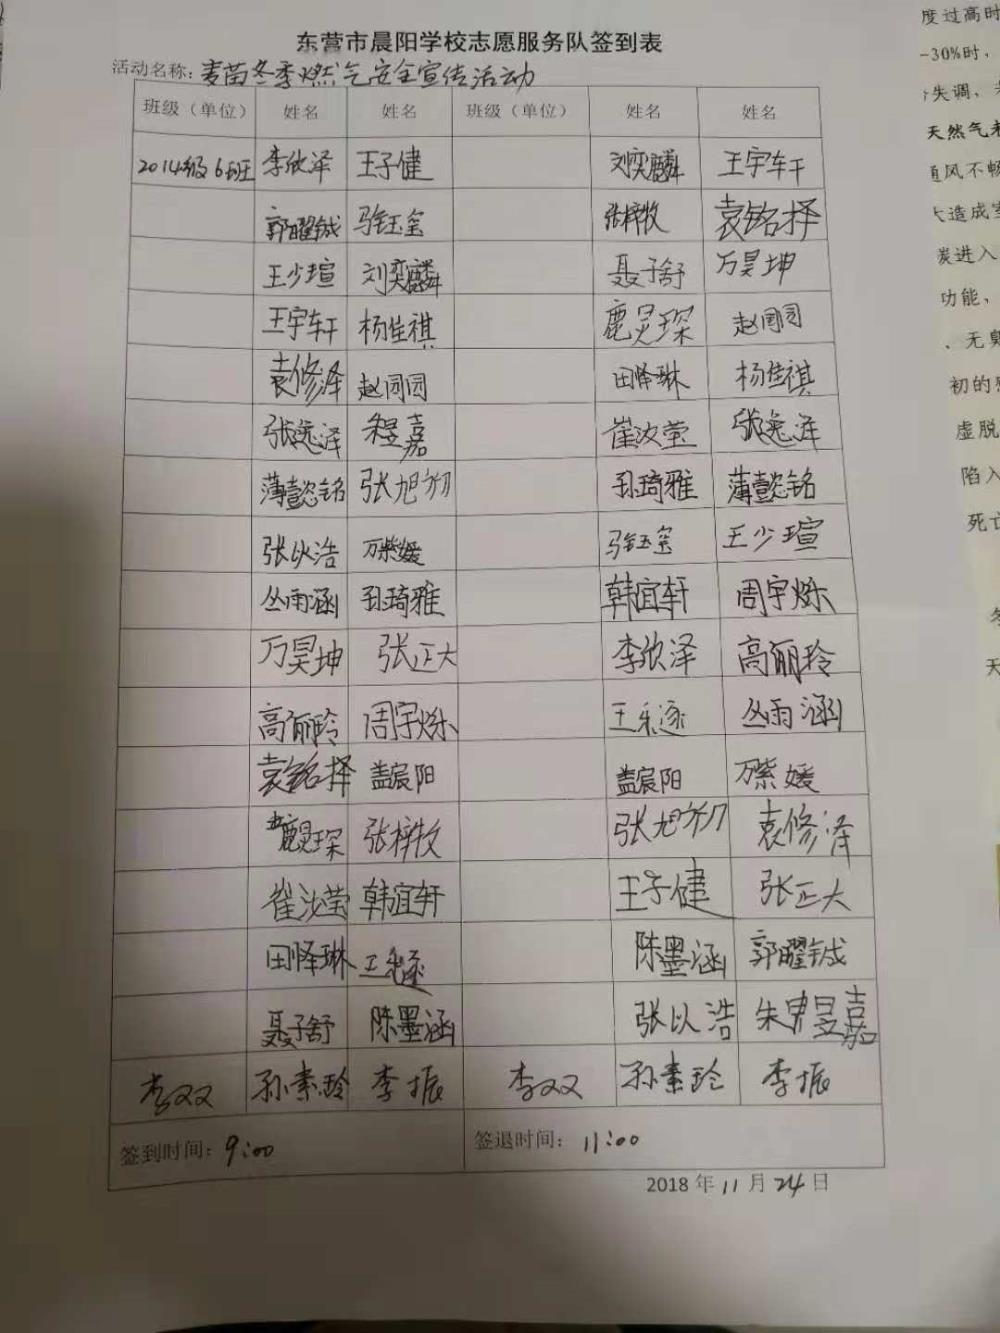 东营市晨阳学校志愿服务队签到表
活动名称：麦苗冬季燃气安全宣传活动
班级（单位） 姓名 姓名 班级（单位） 姓名 姓名
2014级6班 李欣泽 王子健 刘奕麟 王宇轩
郭曜铖 马钰莹 张梓牧 袁铭择
王少瑄 刘奕麟 聂子舒 万昊坤
王宇轩 杨佳祺 鹿灵琛 赵同同
袁修泽 赵同同 田怿琳 杨佳祺
张逸泽 朱昱嘉 崔汝莹 张逸泽
薄懿铭 张旭初 孙琦雅 薄懿铭
张以浩 万紫媛 马钰莹 王少瑄
丛雨涵 孙琦雅 韩宜轩 周宇烁
万昊坤 张正大 李欣泽 高俪玲
高俪玲 周宇烁 丛雨涵
袁铭择 盖宸阳 盖宸阳 万紫媛
鹿灵琛 张梓牧 张旭初 袁修泽
崔汝莹 韩宜轩 王子健 张正大
田怿琳 陈墨涵 郭曜铖
聂子舒 陈墨涵 张以浩 朱昱嘉
李双双 孙素玲 李振 李双双 孙素玲 李振
签到时间：9:00 签退时间：11:00
2018年11月24日
度过高时
-30%时，
失调、
天然气
通风不畅
造成
炭进入
功能，
、无臭
初的
虚脱
陷入
死亡